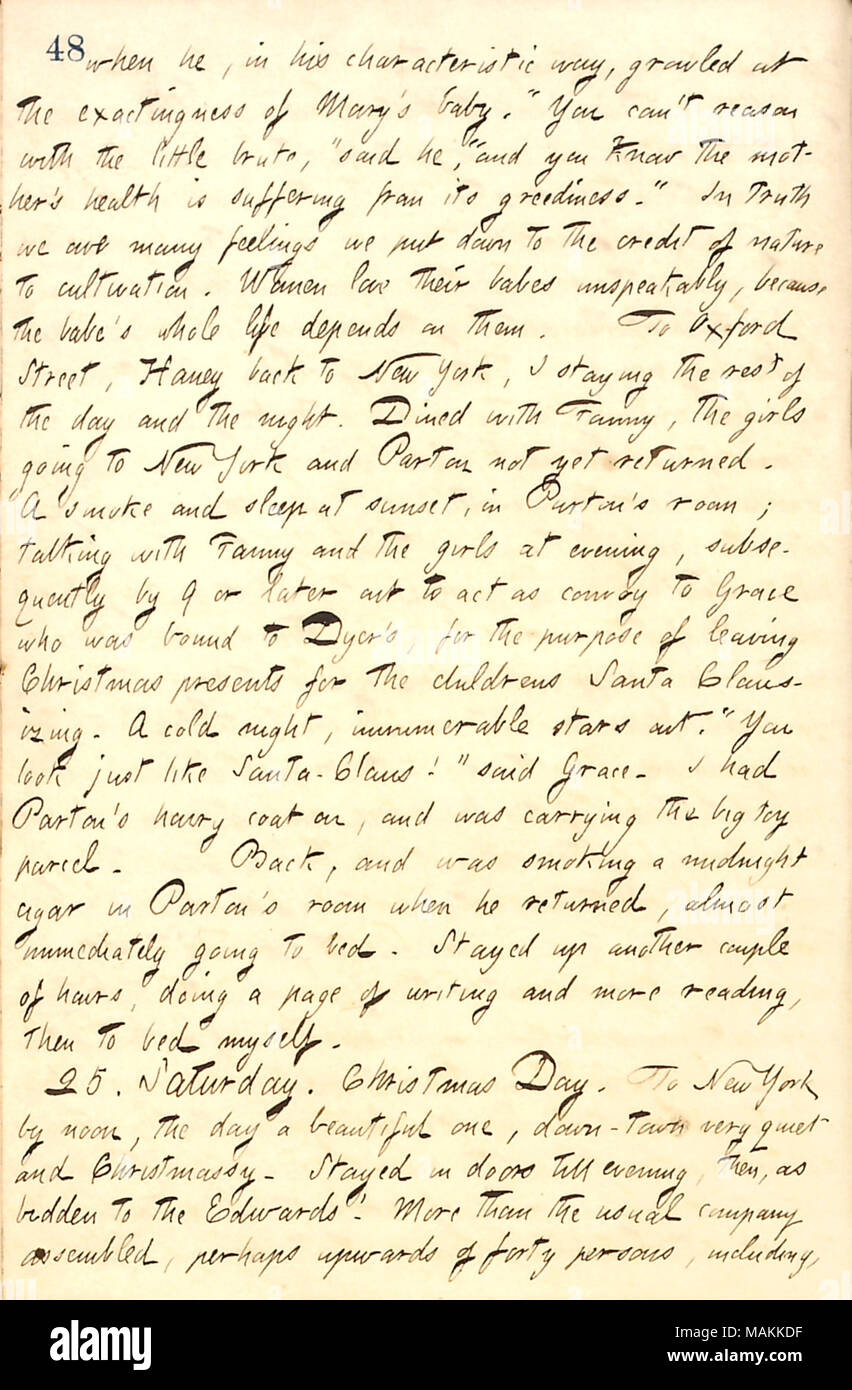 48
when he, in his characteristic way, growled at
the exactingness of Mary's baby. "You can't reason
with the little brute," said he, "and you know the mot-
her's health is suffering from its greediness." In truth
we owe many feelings we put down to the credit of nature
to cultivation. Women love their babes unspeakably, because
the babe's whole life depends on them. To Oxford
Street, Haney back to New York, I staying the rest of
the day and the night. Dined with Fanny, the girls
going to New York and Parton not yet returned.
A smoke and sleep at sunset, in Parton's room;
talking with Fanny and the girls at evening, subse-
quently by 9 or later out to act as convoy to Grace
who was bound to Dyer's, for the purpose of leaving
Christmas presents for the childrens Santa Claus-
izing. A cold night, innumerable stars out. "You
look just like Santa-Claus!" said Grace. I had
Parton's hairy coat on, and was carrying the big toy
parcel. Back, and was smoking a midnight
cigar in Parton's room when he returned, almost
immediately going to bed. Stayed up another couple
of hours, doing a page of writing and more reading,
then to bed myself.
25. Saturday. Christmas Day. To New York
by noon, the day a beautiful one, down-town very quiet
and Christmassy. Stayed in doors till evening, then, as
bidden to the Edwards'. More than the usual company
assembled, perhaps upwards of forty persons, including,
alamy
Image ID: MAKKDF
www.alamy.com